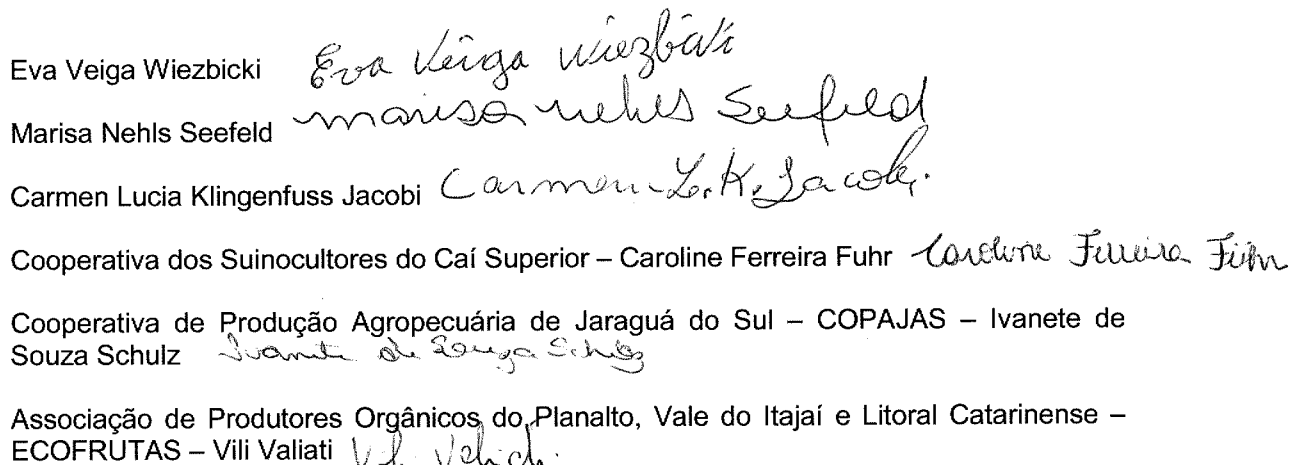 Eva Veiga Wiezbicki Eva Veiga Wiezbicki
Marisa Nehls Seefeld marisa nehls Seefeld
Carmen Lucia Klingenfuss Jacobi Carmen L. K. Jacobi.
Cooperativa dos Suinocultores do Caí Superior – Caroline Ferreira Fuhr Caroline Ferreira Fuhr
Cooperativa de Produção Agropecuária de Jaraguá do Sul – COPAJAS – Ivanete de
Souza Schulz Ivanete de Souza Schulz
Associação de Produtores Orgânicos do Planalto, Vale do Itajaí e Litoral Catarinense –
ECOFRUTAS – Vili Valiati